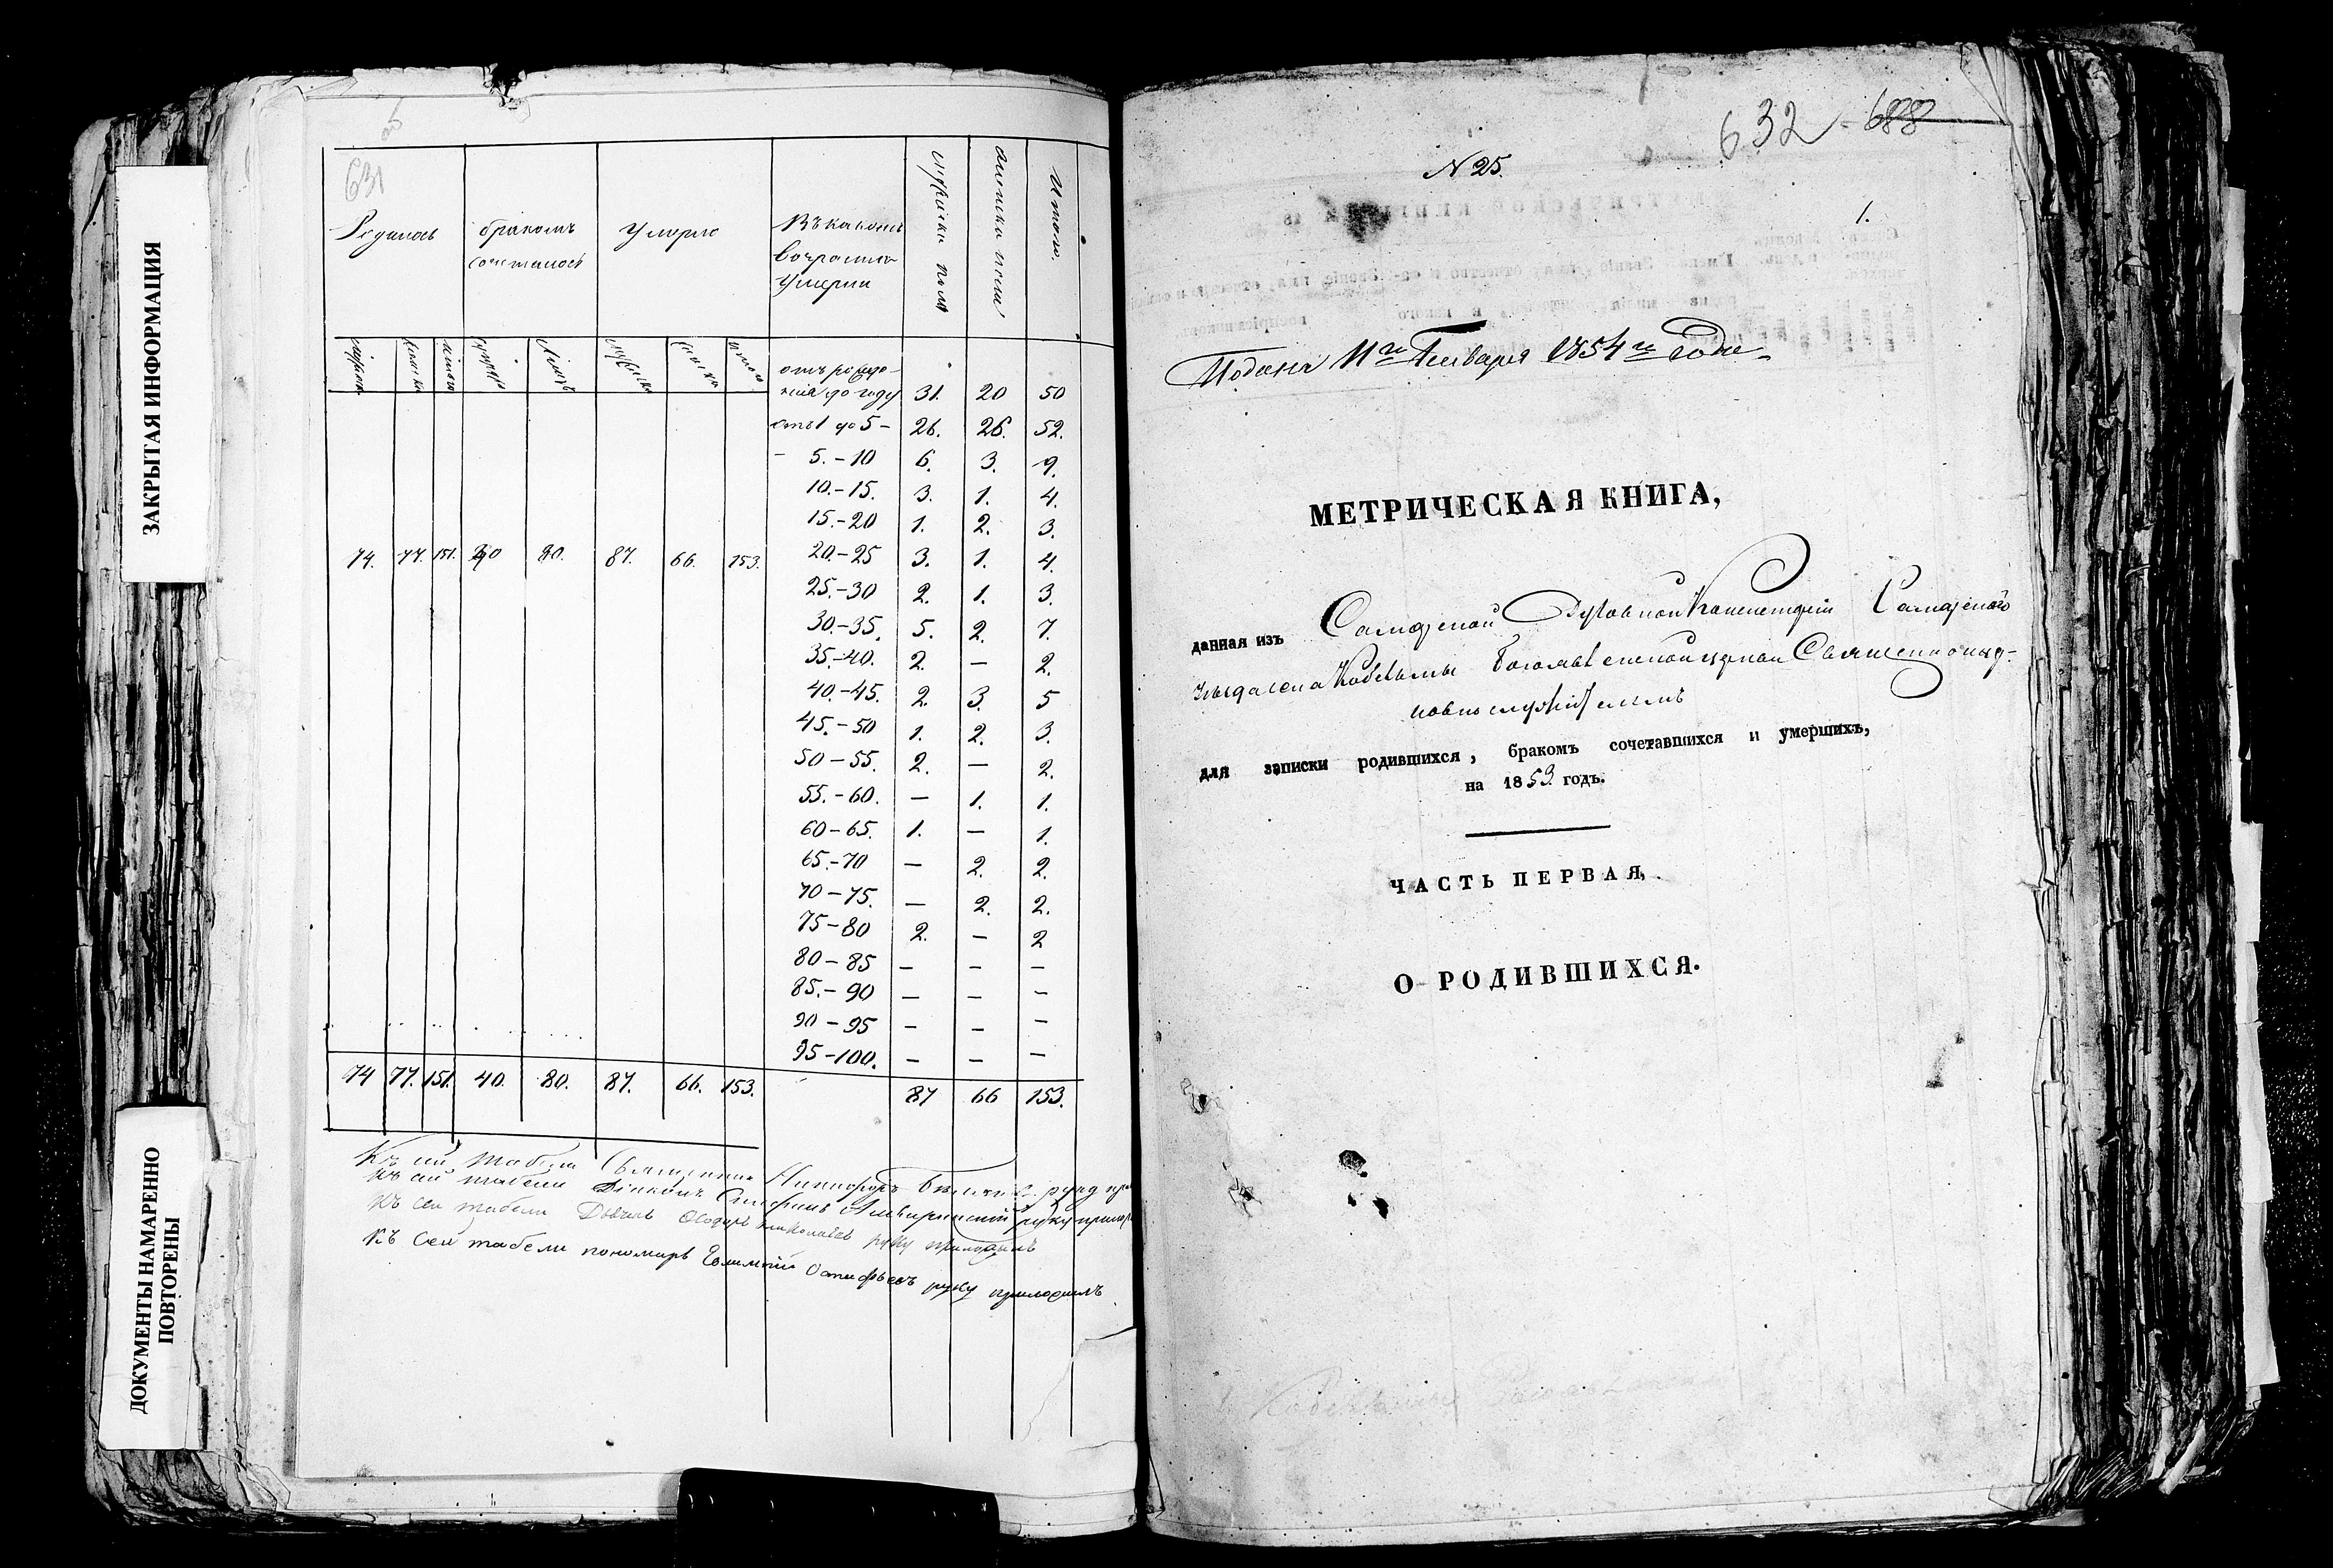 ЗАКРЫТАЯ ИНФОРМАЦИЯ
ДОКУМЕНТЫ НАМАРЕННО
ПОВТОРЕНЫ
631
Родилось бракомъ Умерло Въ какомъ мужеска пола женска пола Итого.
сочеталось возрасте
Умерли
от рожде-
нія до году 31. 20 50
отъ 1 до 5 - 26. 26. 52.
- 5. - 10 6. 3. 9.
10. - 15. 3. 1. 4.
15. - 20 1. 2. 3.
74. 77. 151. 40 80. 87. 66. 153. 20. - 25 3. 1. 4.
25. - 30 2. 1. 3.
30. - 35. 5. 2. 7.
35. - 40. 2. — 2.
40. - 45. 2. 3. 5
45. - 50 1. 2. 3.
50 - 55. 2. — 2.
55. - 60. — 1. 1.
60 - 65. 1. — 1.
65. - 70 — 2. 2.
70 - 75. — 2. 2.
75 - 80 2. — 2
80 - 85 — — —
85. - 90 — — —
90 - 95 — — —
95 - 100. — — —
74 77. 151. 40. 80. 87. 66. 153. 87 66 153.
Къ сей табели Священникъ Никифоръ
Къ сей табели Діаконъ руку
Къ сей табели руку приложилъ
Къ сей табели пономарь Евстафьевъ руку приложилъ
632 - 688
N 25.
1.
Подана 11го Января 1854го года
МЕТРИЧЕСКАЯ КНИГА,
данная изъ Самарской Духовной Консисторіи Самарского
уезда села Кобельмы Богоявленской церкви Священноцер-
ковнослужителямъ
для записки родившихся, бракомъ сочетавшихся и умершихъ,
на 1853. годъ.
ЧАСТЬ ПЕРВАЯ,
О РОДИВШИХСЯ.